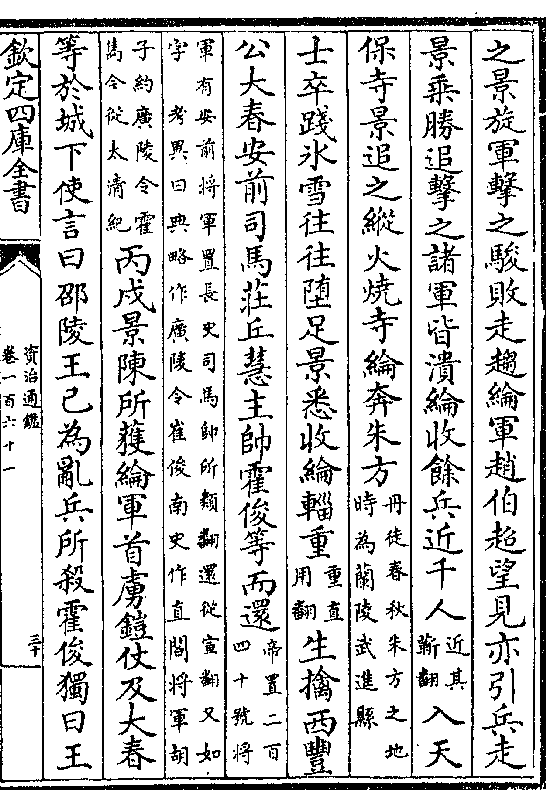 之景旋軍擊之駿敗走趨綸軍趙伯超望見亦引兵走
景乘勝追擊之諸軍皆潰綸收餘兵近千人近其靳翻入天
保寺景追之縱火燒寺綸奔朱方丹徒春秋朱方之地時為蘭陵武進縣
士卒踐氷雪往往堕足景悉收綸輜重重直用翻生擒西豐
公大春安前司馬莊丘慧主帥霍俊等而還帝置二百四十號將
軍有安前將軍置長史司馬帥所類翻還從宣翻又如字考異曰典略作廣陵令崔俊南史作直閤將軍胡
子約廣陵令霍雋今從太清紀丙戌景陳所獲綸軍首虜鎧仗及大春
等於城下使言曰邵陵王已為亂兵所殺霍俊獨曰王
欽定四庫全書
資治通鑑
卷一百六十一
三十